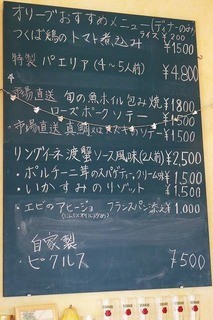 オリーブおすすめメニュー(ディナーのみ)
ライス ¥200
つくば鶏のトマト煮込み ¥1500
特製 パエリア(4~5人前) ¥4.800
市場直送 旬の魚ホイル包み焼 ¥1800
ローズポークソテー ¥1500
・市場直送 真鯛又はスズキのソテー ¥1500
リングイーネ渡蟹ソース風味(2人前) ¥2,500
・ポルチーニ茸のスパゲティークリーム味 ¥1.500
・いかすみのリゾット ¥1.500
・エビのアヒージョ フランスパン添え ¥1.000
自家製
・ピクルス ¥500